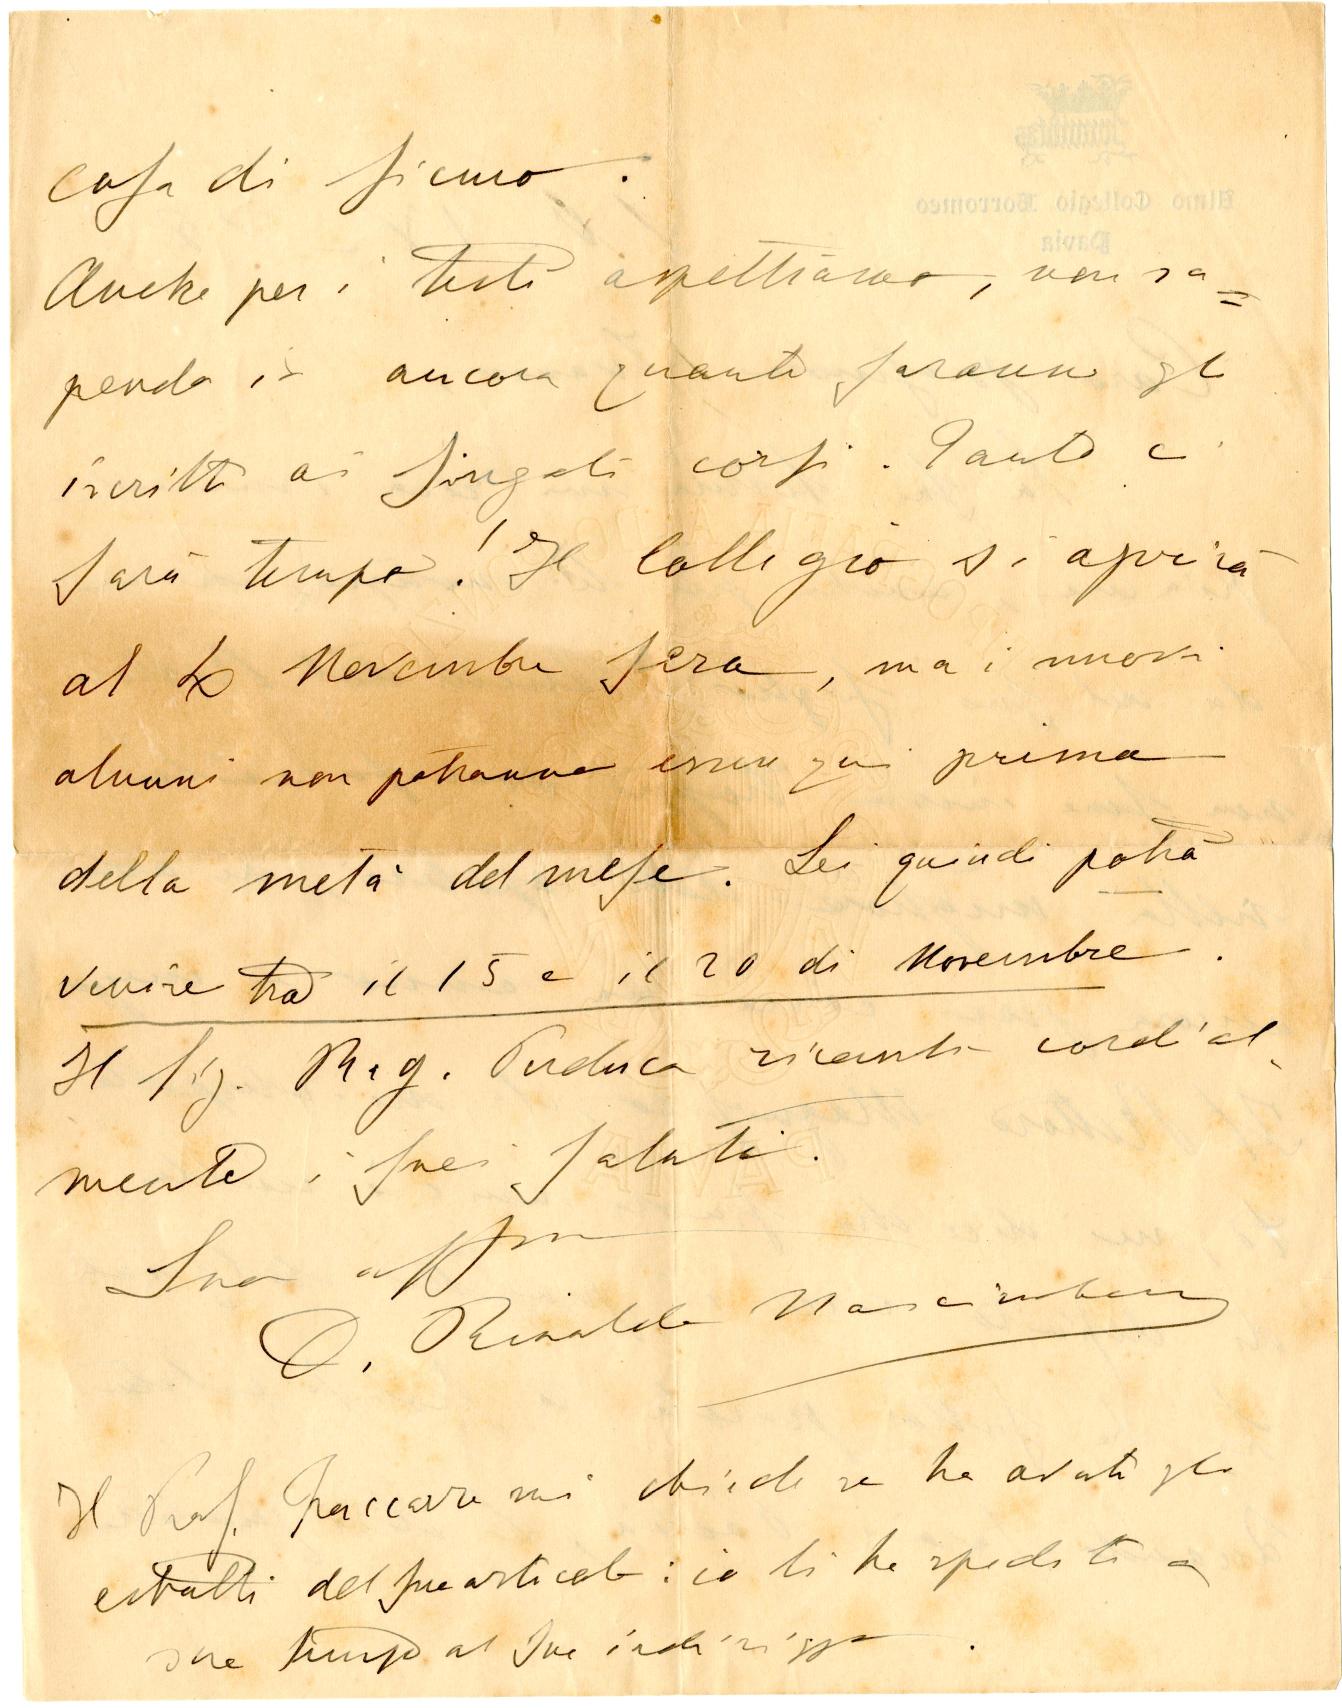 cosa di sicuro.
Anche per i testi aspettiamo, non sa=
pendo io ancora quanti saranno gli
iscritti ai singoli corsi. Tanto ci
sarà tempo! Il Collegio si aprirà
al Novembre sera, ma i nuovi
alunni non potranno essere qui prima
della metà del mese. Lei quindi potrà
venire tra il 15 e il 20 di Novembre.
Il Sig. Rag. Perduca ricambia cordial-
mente i suoi saluti.
Suo aff.mo
D. Rinaldo Nascimbene
Il Prof. mi chiede se ha avuti gli
estratti del suo articolo: io li ho spediti a
suo tempo al Suo indirizzo.
Almo Collegio Borromeo
Pavia